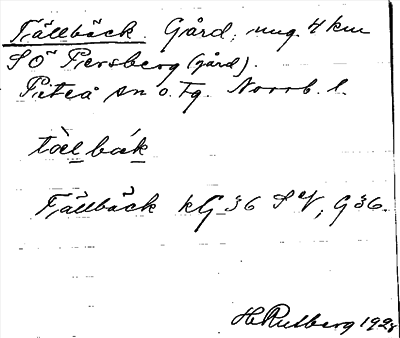 Tällbäck. Gård; ung. 4 km
SÖ Persberg (gård).
Piteå sn o. tg. Norrb. l.
Tällbäck kG 36 SV; G 36.
H Rutberg 1928